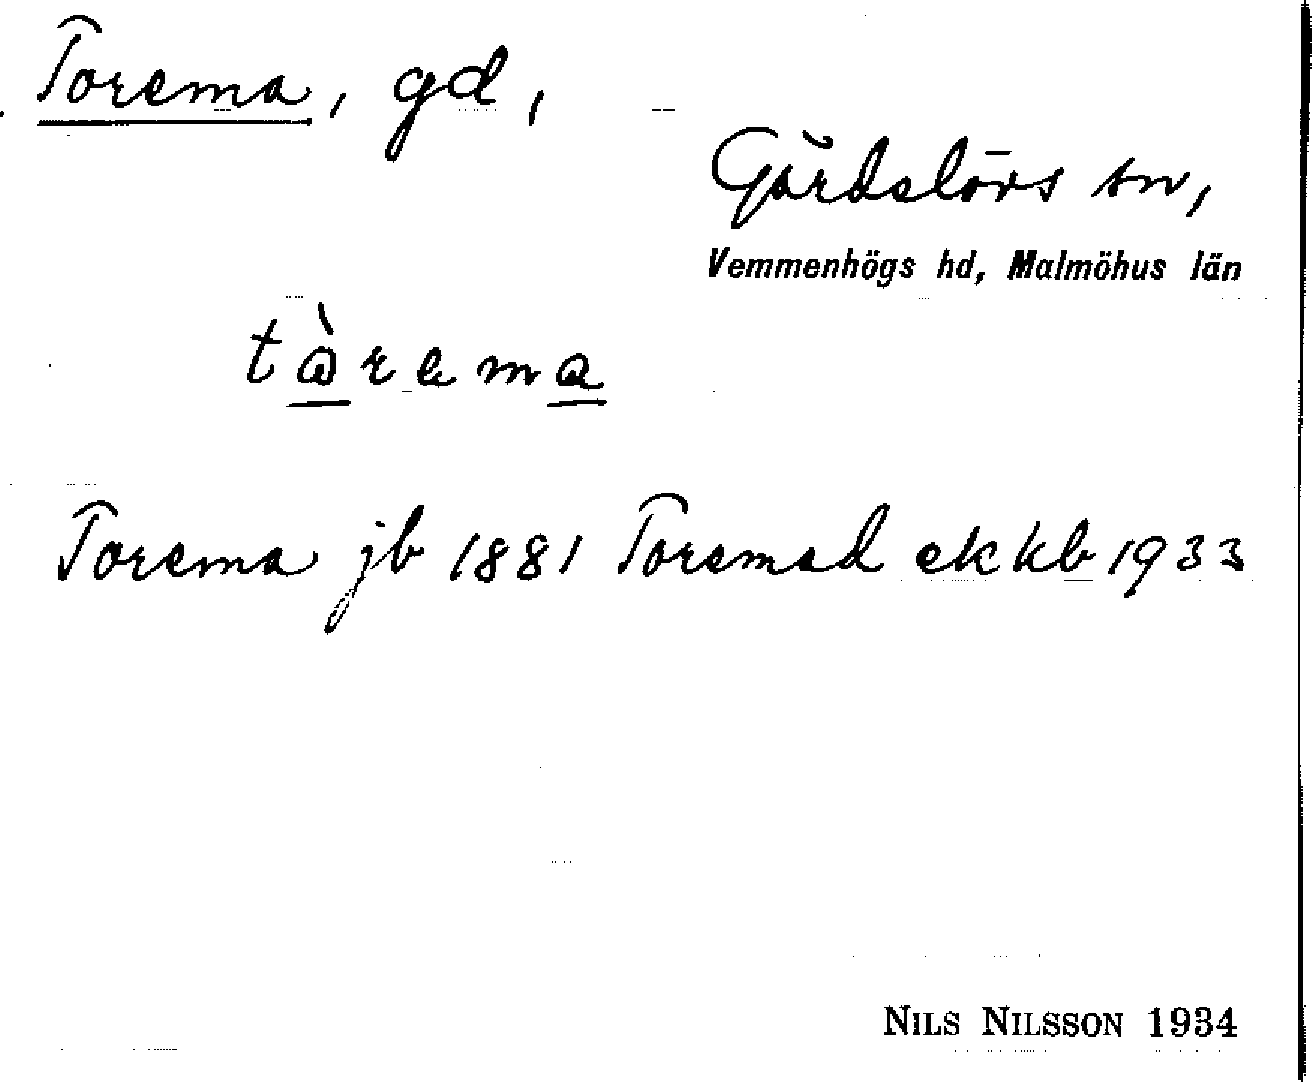 Torema, gd,
Gärdslövs sn,
Vemmenhögs hd, Malmöhus län
tàrema
Torema jb 1881 Toremad ekkb 1933
NILS NILSSON 1934